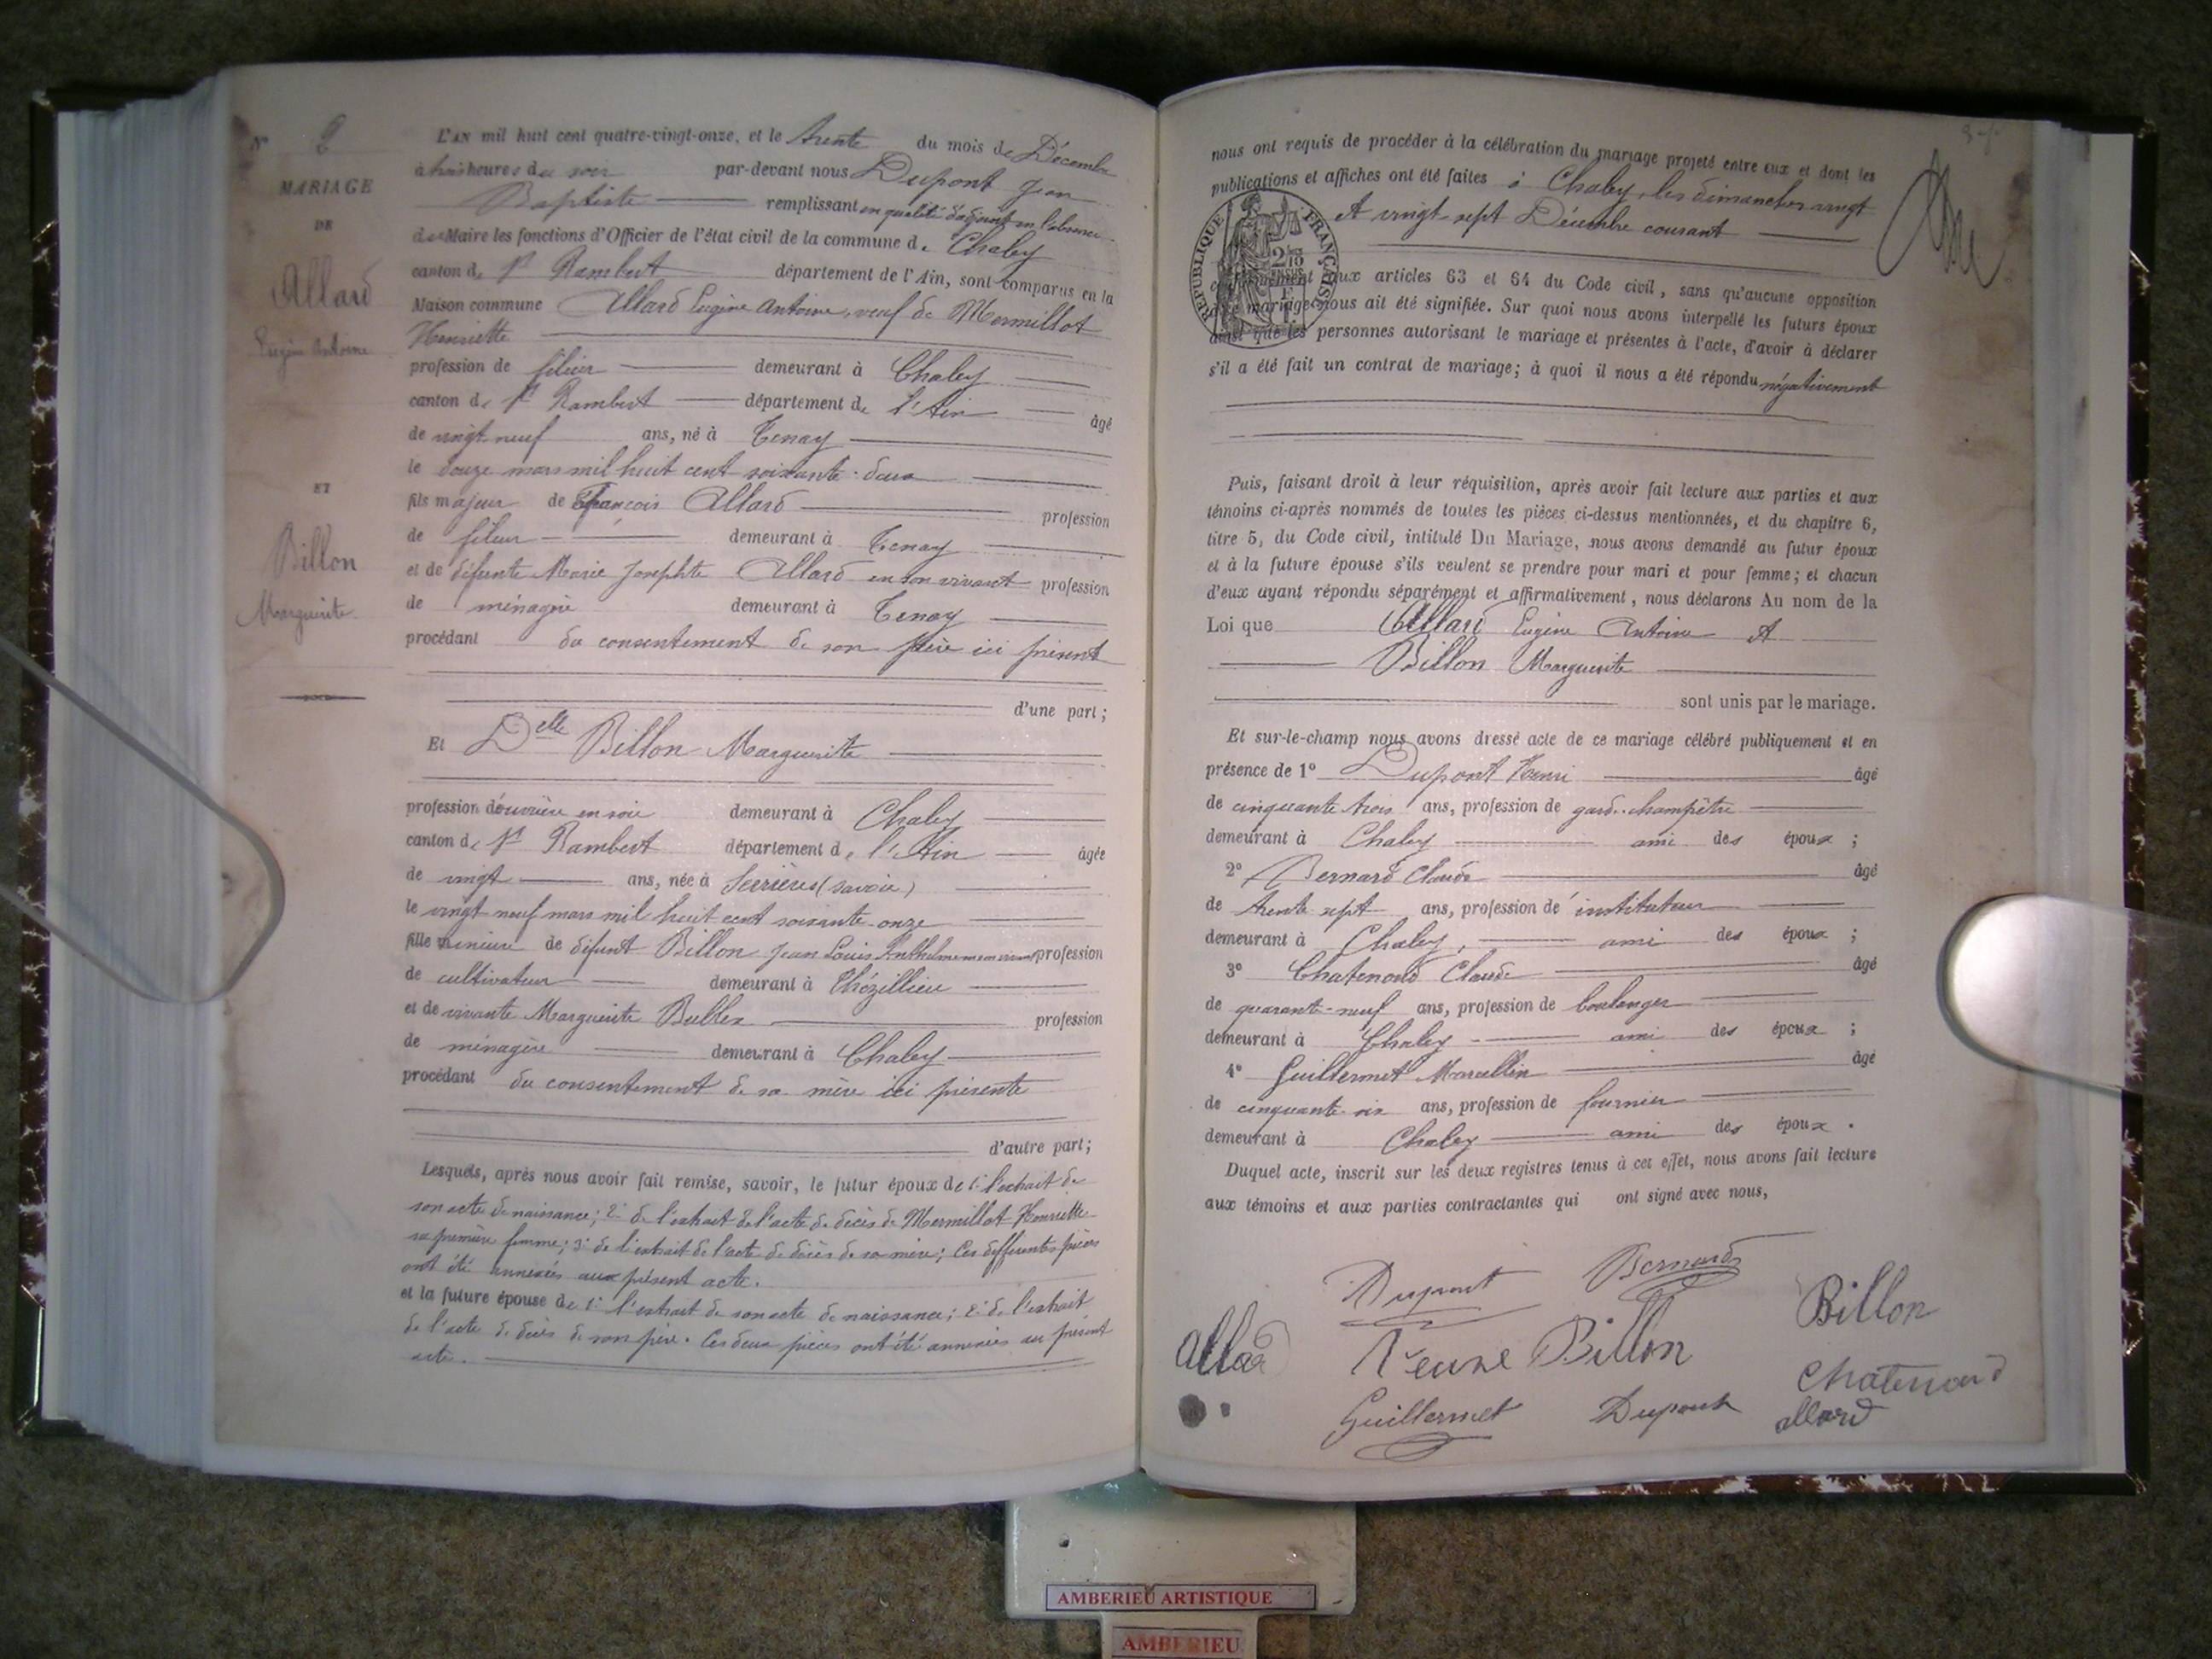 N° 2
MARIAGE
DE
Allard
Eugène Antoine
ET
Billon
Marguerite
L'AN mil huit cent quatre-vingt-onze, et le trente du mois de Décembre
à trois heures du soir par-devant nous Dupont Jean
Baptiste remplissant en qualité d'adjoint en l'absence
du Maire les fonctions d'Officier de l'état civil de la commune de Chaley
canton de St Rambert département de l'Ain, sont comparus en la
Maison commune Allard Eugène Antoine, veuf de Mermillot
Henriette
profession de fileur demeurant à Chaley
canton de St Rambert département de l'Ain âgé
de vingt neuf ans, né à Tenay
le douze mars mil huit cent soixante-deux
fils majeur de François Allard profession
de fileur demeurant à Tenay
et de défunte Marie Josephte Allard en son vivant profession
de ménagère demeurant à Tenay
procédant du consentement de son père ici présent
d'une part;
Et Delle Billon Marguerite
profession d'ouvrière en soie demeurant à Chaley
canton de St Rambert département de l'Ain âgée
de vingt ans, née à Serrières (Savoie)
le vingt neuf mars mil huit cent soixante-onze
fille mineure de défunt Billon Jean Louis Anthelme en son vivant profession
de cultivateur demeurant à Thézillieu
et de vivante Marguerite Bullex profession
de ménagère demeurant à Chaley
procédant du consentement de sa mère ici présente
d'autre part;
Lesquels, après nous avoir fait remise, savoir, le futur époux de 1° l'extrait de
son acte de naissance; 2° de l'extrait de l'acte de décès de Mermillot Henriette
sa première femme; 3° de l'extrait de l'acte de décès de sa mère; Ces différentes pièces
ont été annexées aux présent acte.
et la future épouse de 1° l'extrait de son acte de naissance; 2° de l'extrait
de l'acte de décès de son père. Ces deux pièces ont été annexées au présent
acte.
nous ont requis de procéder à la célébration du mariage projeté entre eux et dont les
publications et affiches ont été faites à Chaley, les dimanches vingt
et vingt sept Décembre courant
RÉPUBLIQUE FRANÇAISE
conformément aux articles 63 et 64 du Code civil, sans qu'aucune opposition
mariage nous ait été signifiée. Sur quoi nous avons interpellé les futurs époux
ainsi que les personnes autorisant le mariage et présentes à l'acte, d'avoir à déclarer
s'il a été fait un contrat de mariage; à quoi il nous a été répondu négativement
Puis, faisant droit à leur réquisition, après avoir fait lecture aux parties et aux
témoins ci-après nommés de toutes les pièces ci-dessus mentionnées, et du chapitre 6,
titre 5, du Code civil, intitulé Du Mariage, nous avons demandé au futur époux
et à la future épouse s'ils veulent se prendre pour mari et pour femme; et chacun
d'eux ayant répondu séparément et affirmativement, nous déclarons Au nom de la
Loi que Allard Eugène Antoine et
Billon Marguerite
sont unis par le mariage.
Et sur-le-champ nous avons dressé acte de ce mariage célébré publiquement et en
présence de 1° Dupont Henri âgé
de cinquante trois ans, profession de garde-champêtre
demeurant à Chaley ami des époux;
2° Bernard Claude âgé
de trente sept ans, profession d'instituteur
demeurant à Chaley, ami des époux;
3° Chatenoud Claude âgé
de quarante-neuf ans, profession de boulanger
demeurant à Chaley ami des époux;
4° Guillermet Marcellin âgé
de cinquante-six ans, profession de fournier
demeurant à Chaley ami des époux.
Duquel acte, inscrit sur les deux registres tenus à cet effet, nous avons fait lecture
aux témoins et aux parties contractantes qui ont signé avec nous,
Dupont Bernard Billon
allard Veuve Billon
Chatenoud
Guillermet Dupont allard
AMBERIEU ARTISTIQUE
AMBERIEU